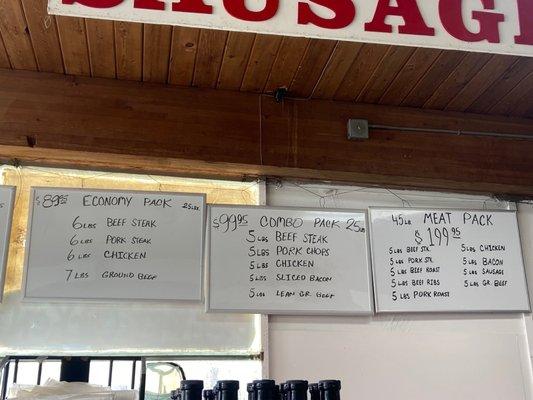 SAUSAGE
$89.95 ECONOMY PACK 25LBS
6LBS BEEF STEAK
6LBS PORK STEAK
6LBS CHICKEN
7LBS GROUND BEEF
$99.95 COMBO PACK 25LB
5LBS BEEF STEAK
5LBS PORK CHOPS
5LBS CHICKEN
5LBS SLICED BACON
5LBS LEAN GR. BEEF
45LB MEAT PACK
$199.95
5LBS BEEF STK.
5LBS PORK STK.
5LBS BEEF ROAST
5LBS BEEF RIBS
5LBS PORK ROAST
5LBS CHICKEN
5LBS BACON
5LBS SAUSAGE
5LBS GR. BEEF